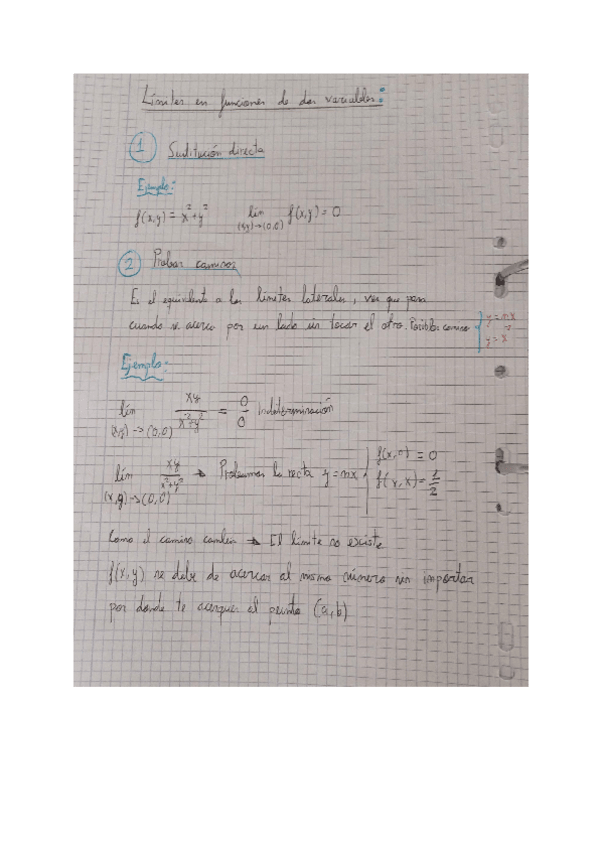 Límites en funciones de dos variables:
1 Sustitución directa
Ejemplo:
f(x,y) = x²+y² lím (x,y)→(0,0) f(x,y) = 0
2 Probar caminos
Es el equivalente a los límites laterales, ver que pasa
cuando se acerca por un lado sin tocar el otro. Posibles caminos { y = mx
y = x²
Ejemplo:
lím (x,y)→(0,0) xy/(x²+y²) = 0/0 Indeterminación
lím (x,y)→(0,0) xy/(x²+y²) → Probamos la recta y = mx | f(x,0) = 0
f(x,x) = 1/2
Como el camino cambia → El límite no existe
f(x,y) se debe de acercar al mismo número sin importar
por donde te acerques el punto (a,b)